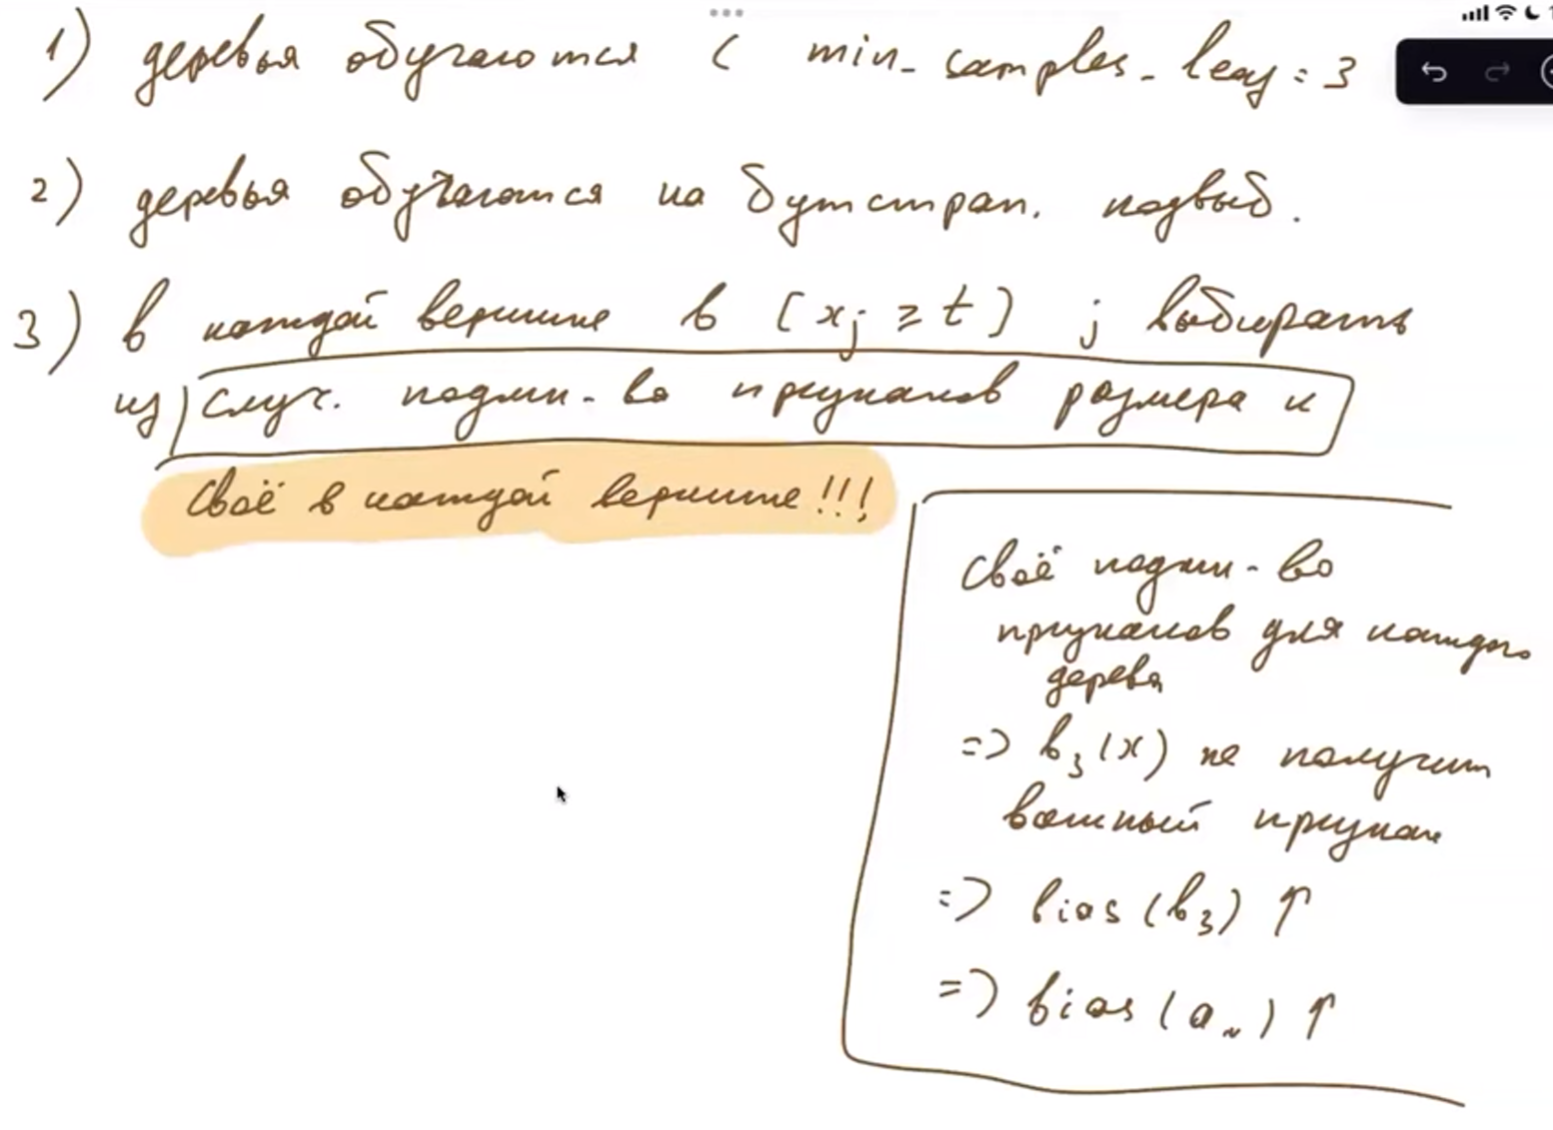 1) деревья обучаются с min_samples_leaf = 3
2) деревья обучаются на бутстрап. подвыб.
3) в каждой вершине в [x_j ≥ t] j выбирать
из случ. подмн-ва признаков размера k
Своё в каждой вершине!!!
Своё подмн-во
признаков для каждого
дерева
=> b_3(x) не получит
важный признак
=> bias(b_3) ↑
=> bias(a_N) ↑